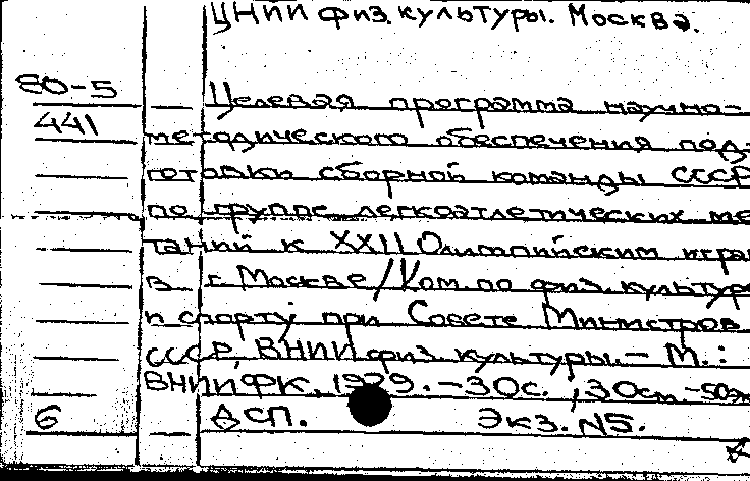 ЦНИИ физ. культуры. Москва.
80-5 Целевая программа научно-
441 методического обеспечения под-
готовки сборной команды СССР
по группе легкоатлетических ме-
таний к XXII Олимпийским играм
в г. Москве / Ком. по физ. культуре
и спорту при Совете Министров
СССР, ВНИИ физ. культуры. - М.:
ВНИИФК, 1979. - 30 с.; 30 см. - 50 эк
6 ДСП. Экз. N5.